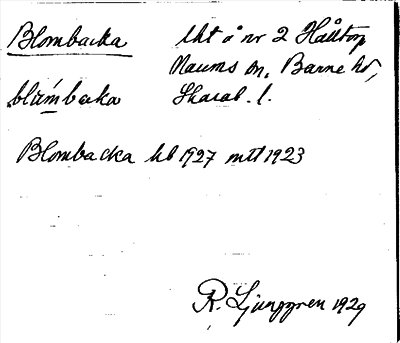 Blombacka lht å nr 2 Hålltorp
Naums sn, Barne hd,
blåmbaka Skarab. l.
Blombacka hb 1927 mtl 1923
R. Ljunggren 1929